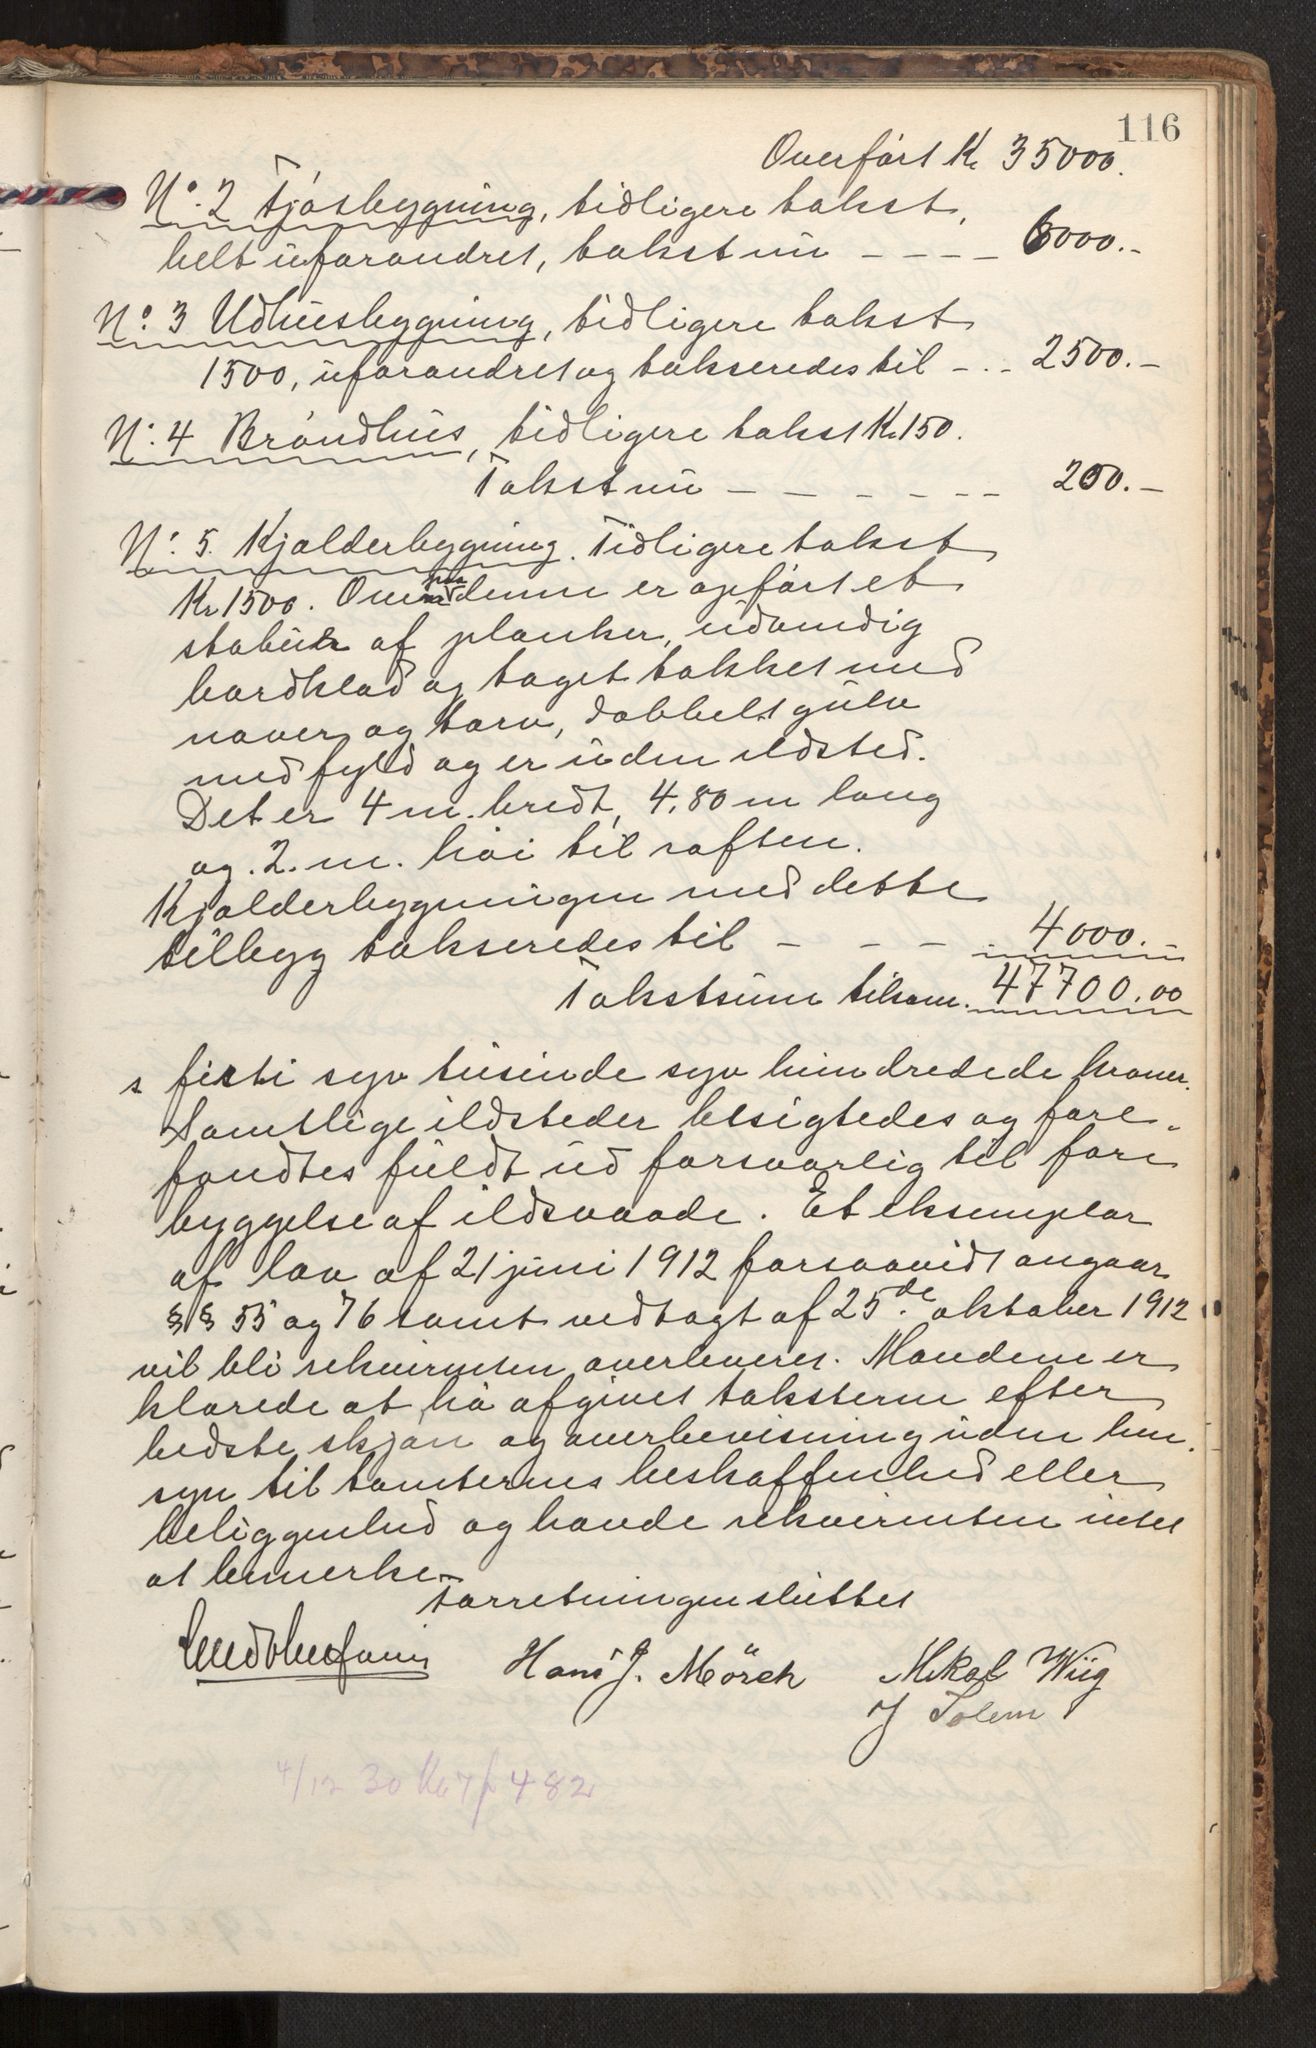 116
Overført Kr 35000.
No. 2 Fjøsbygning, tidligere takst,
helt uforandret, takst nu – – – – 6000.–
No. 3 Udhusbygning, tidligere takst
1500, uforandret og takseredes til – . – 2500.–
N. 4 Brøndhus, tidligere takst Kr. 150.
Takst nu – – – – – – 200.–
N. 5. Kjælderbygning. Tidligere takst
Kr 1500. Oven paa denne er opført et
stabur af planker, udvendig
bordklæd og taget tækket med
næver og torv, dobbelt gulv
med fyld og er uden ildsted.
Det er 4 m. bredt, 4,80 m lang
og. 2. m. høi til raften.
Kjælderbygningen med dette
tilbygg takseredes til – – – . 4000.–
Takstsum tilsam. 47700.00
s firti syv tusinde syv hundredede kroner.
Samtlige ildsteder besigtedes og fore-
fandtes fuldt ud forsvarlig til fore
byggelse af ildsvaade. Et eksemplar
af lov af 21 juni 1912 forsaavidt angaar
§§ 55 og 76 samt vedtægt af 25.de oktober 1912
vil bli rekvirenten overleveret. Mændene er
klærede at ha afgivet taksterne efter
bedste skjøn og overbevisning uden hen-
syn til tomternes beskaffenhed eller
beliggenhed og havde rekvirenten intet
at bemerke.
Forretningen sluttet
Hans J. Mörch Mikal Wiig
J Solem
4/12 30 Kr 7 p 482